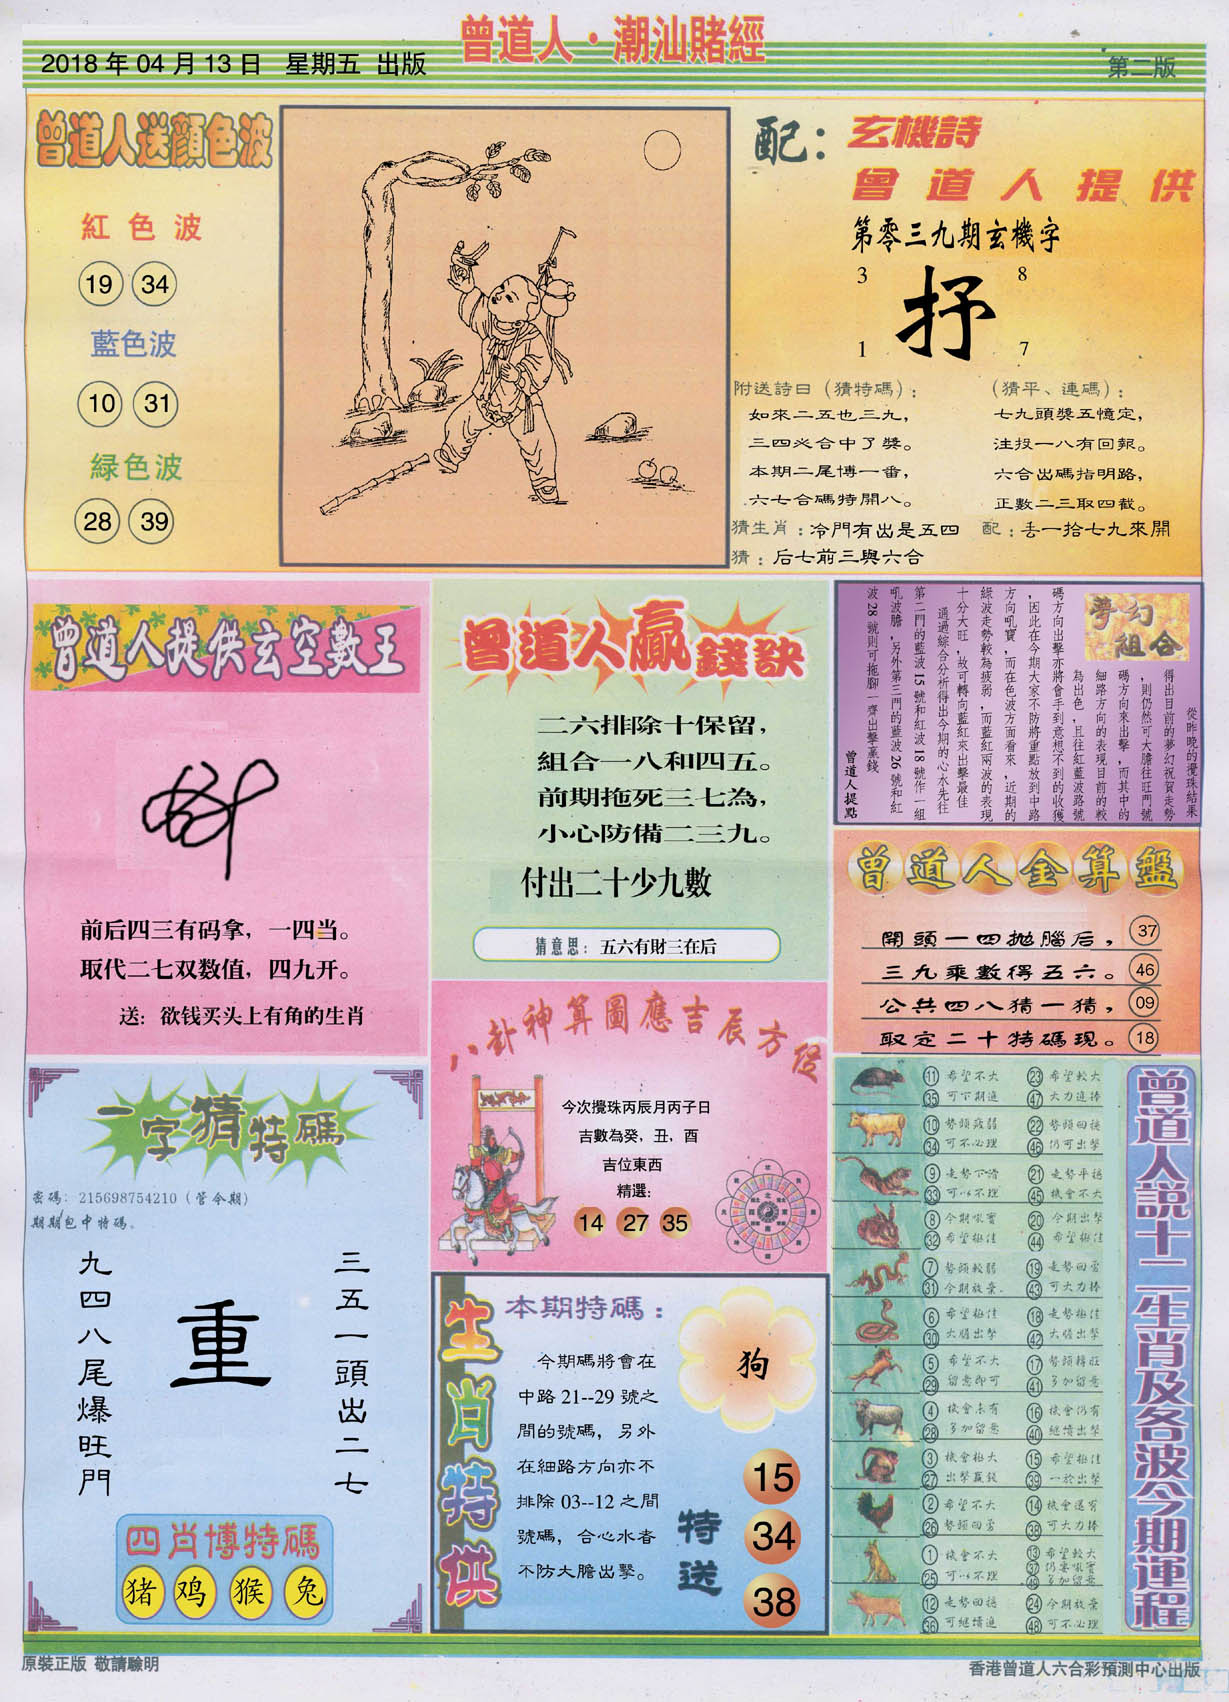 曾道人·潮汕賭經
2018年04月13日 星期五 出版
第二版
曾道人送顏色波
紅色波
19 34
藍色波
10 31
緑色波
28 39
配：玄機詩
曾道人提供
第零三九期玄機字
3 8
抒
1 7
附送詩曰（猜特碼）：
如來二五也三九，
三四必合中了獎。
本期二尾博一番，
六七合碼特開八。
（猜平、連碼）：
七九頭獎五憶定，
注投一八有回報。
六合出碼指明路，
正數二三取四截。
猜生肖：冷門有出是五四
配：丢一拾七九來開
猜：后七前三與六合
曾道人提供玄空數王
前后四三有码拿，一四当。
取代二七双数值，四九开。
送：欲钱买头上有角的生肖
曾道人贏錢訣
二六排除十保留，
組合一八和四五。
前期拖死三七為，
小心防備二三九。
付出二十少九數
猜意思：五六有財三在后
夢幻
組合
從昨晚的攪珠結果
得出目前的夢幻祝賀走勢
，則仍然可大膽往旺門號
碼方向來出擊，而其中的
細路方向的表現目前的較
為出色，且往紅藍波路號
碼方向出擊亦將會手到意想不到的收獲
，因此在今期大家不防將重點放到中路
方向吼寶，而在色波方面看來，近期的
緑波走勢較為疲弱，而藍紅兩波的表現
十分大旺，故可轉向藍紅來出擊最佳
通過綜合分析得出今期的心水先往
第二門的藍波15號和紅波18號作一組
吼波膽，另外第三門的藍波26號和紅
波28號則可拖腳一齊出擊贏錢
曾道人提點
曾道人金算盤
開頭一四拋腦后， 37
三九乘數得五六。 46
公共四八猜一猜， 09
取定二十特碼現。 18
八卦神算圖應吉辰方位
今次攪珠丙辰月丙子日
吉數為癸，丑，酉
吉位東西
精選：
14 27 35
一字猜特碼
密碼：215698754210（管今期）
期期包中特碼。
九四八尾爆旺門
重
三五一頭出二七
四肖博特碼
猪 鸡 猴 兔
生肖特供
本期特碼：
今期碼將會在
中路21--29號之
間的號碼，另外
在細路方向亦不
排除03--12之間
號碼，合心水者
不防大膽出擊。
狗
特送
15
34
38
曾道人説十二生肖及各波今期運程
11 希望不大 23 希望較大
35 可下期進 47 大力進捧
10 勢頭疲弱 22 勢頭回穩
34 可不必理 46 仍可出擊
9 走勢下滑 21 走勢平穩
33 可以不理 45 機會不大
8 今期吼寶 20 今期出擊
32 希望極佳 44 希望極佳
7 勢頭較弱 19 走勢回勇
31 今期放棄 43 可大力捧
6 希望極佳 18 走勢極佳
30 大膽出擊 42 大膽出擊
5 希望不大 17 勢頭轉旺
29 留意即可 41 多加留意
4 機會未有 16 機會仍有
28 多加留意 40 繼續出擊
3 機會極大 15 希望極佳
27 出擊贏錢 39 一於出擊
2 希望不大 14 機會還有
26 勢頭回勇 38 可大力捧
1 機會不大 13 希望較大
25 可以不理 37 仍要吼寶
49 多加留意
12 走勢回穩 24 今期放棄
36 可繼續進 48 可不必理
原裝正版 敬請驗明
香港曾道人六合彩預測中心出版